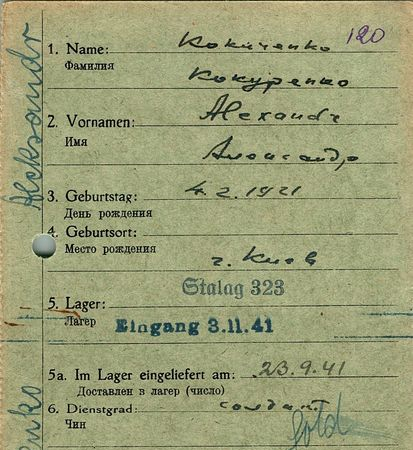 120
1. Name:
Фамилия
Кокуренко
2. Vornamen: Alexandr
Имя
Александр
3. Geburtstag: 4.2.1921
День рождения
4. Geburtsort:
Место рождения
г. Киев
Stalag 323
5. Lager:
Лагер
Eingang 3.11.41
5a. Im Lager eingeliefert am: 23.9.41
Доставлен в лагер (число)
6. Dienstgrad: солдат
Чин
Sold
Aleksandr
enko